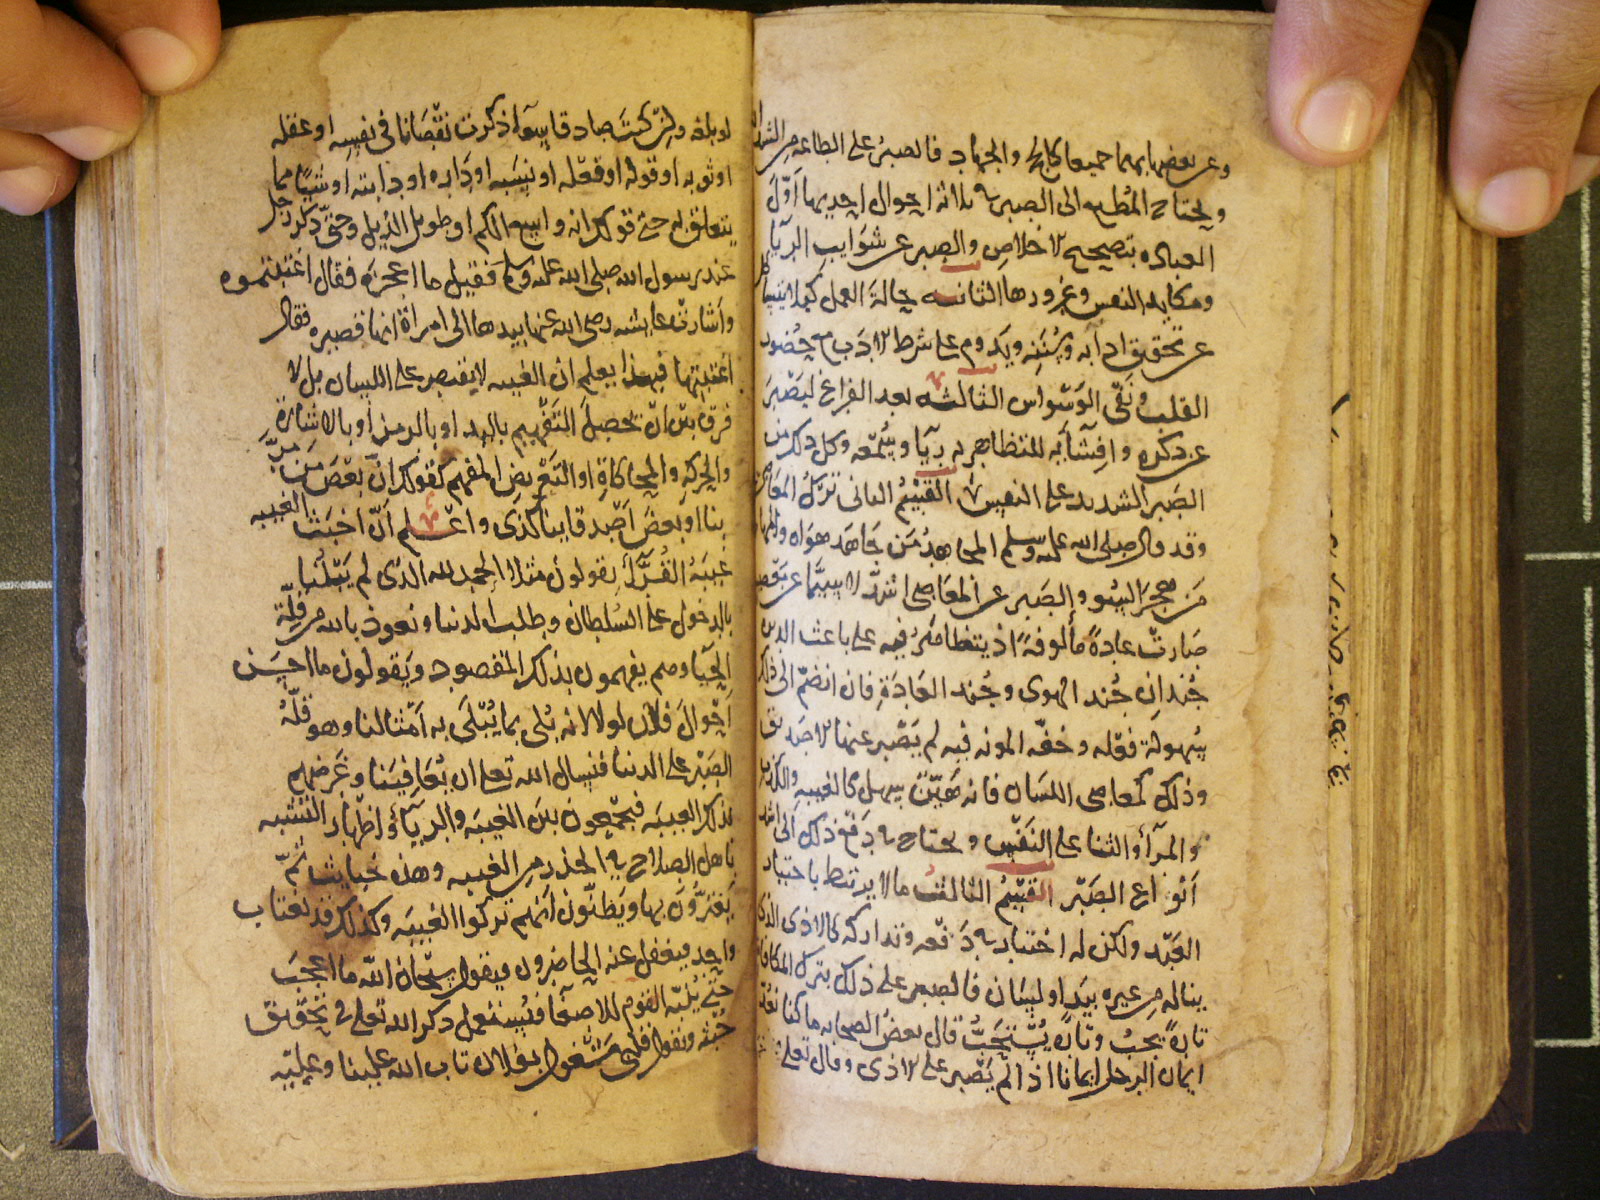 وعن بعضها بهما جميعا كالحج والجهاد فالصبر على الطاعه من الشدايد
ويحتاج المطيع الى الصبر في ثلاثة احوال احديها اول
العباده بتصحيح الاخلاص والصبر عن شوايب الريا
ومكايد النفس وغرورها الثانيه حالة العمل كيلا
عن تحقيق ادابه وسننه ويدوم على شرط الادب مع حضور
القلب ونفى الوسواس الثالثه بعد الفراغ ليصبر
عن ذكره وافشايه للتظاهر به ريا وسمعه وكل ذلك من
الصبر الشديد على النفس القسم الثانى ترك المعاصى
وقد قال صلى الله عليه وسلم المجاهد من جاهد هواه والمهاجر
من هجر السوء والصبر عن المعاصى اشد لا سيما عن
صارت عادة مالوفة اذ يتظاهر فيه على باعث الدين
جندان جند الهوى وجند العادة فان انضم الى ذلك
سهولة فعله وخفه المونه فيه لم يصبر عنها الا صديق
وذلك كمعاصى اللسان فانه هين سهل كالغيبه والكذب
والمرآء والثنا على النفس ويحتاج في دفع ذلك الى اشد
انواع الصبر القسم الثالث ما لا يرتبط باختيار
العبد ولكن له اختيار في دفعه وتداركه كالاذى الذى
يناله من غيره بيد او لسان فالصبر على ذلك بترك المكافاة
تارة يجب وتارة يستحب قال بعض الصحابه ما كنا نعد
ايمان الرجل ايمانا اذا لم يصبر على الاذى وقال تعلى
لو بلغه وان كنت صادقا سوا ذكرت نقصانا فى نفسه او عقله
او ثوبه او قوله او فعله او نسبه او داره او دابته او شيا مما
يتعلق به حتى قولك انه واسع الكم او طويل الذيل وحتى ذكر رجل
عند رسول الله صلى الله عليه وسلم فقيل ما اعجزه فقال اغتبتموه
واشارت عايشه رضى الله عنها بيدها الى امراة انها قصيره فقال
اغتبتها فبهذا يعلم ان الغيبه لا يقتصر على اللسان بل لا
فرق بين ان يحصل التفهيم باليد او بالرمز او بالاشارة
والحركه والمحاكاة او التعريض المفهم كقولك ان بعض من مر
بنا او بعض اصدقاينا كذى واعلم ان اخبث الغيبه
غيبة القراء يقولون مثلا الحمد لله الذى لم يبتلنا
بالدخول على السلطان وطلب الدنيا ونعوذ بالله من قلة
الحيا وهم يفهمون بذلك المقصود ويقولون ما احسن
احوال فلان لولا انه بلى بما يبتلى به امثالنا وهو قلة
الصبر على الدنيا فنسال الله تعلى ان يعافينا وغرضهم
بذكر الغيبه فيجمعون بين الغيبه والرياء واظهار التشبه
باهل الصلاح في الحذر من الغيبه وهذه خبايث ثم
يغترون بها ويظنون انهم تركوا الغيبه وكذلك قد يغتاب
واحد فيغفل عنه الحاضرون فيقول سبحان الله ما اعجب
حتى ينبه القوم للاصغا فيستعمل ذكر الله تعلى فى تحقيق
خبثه ونقول قلبى مشغول بفلان تاب الله علينا وعليه